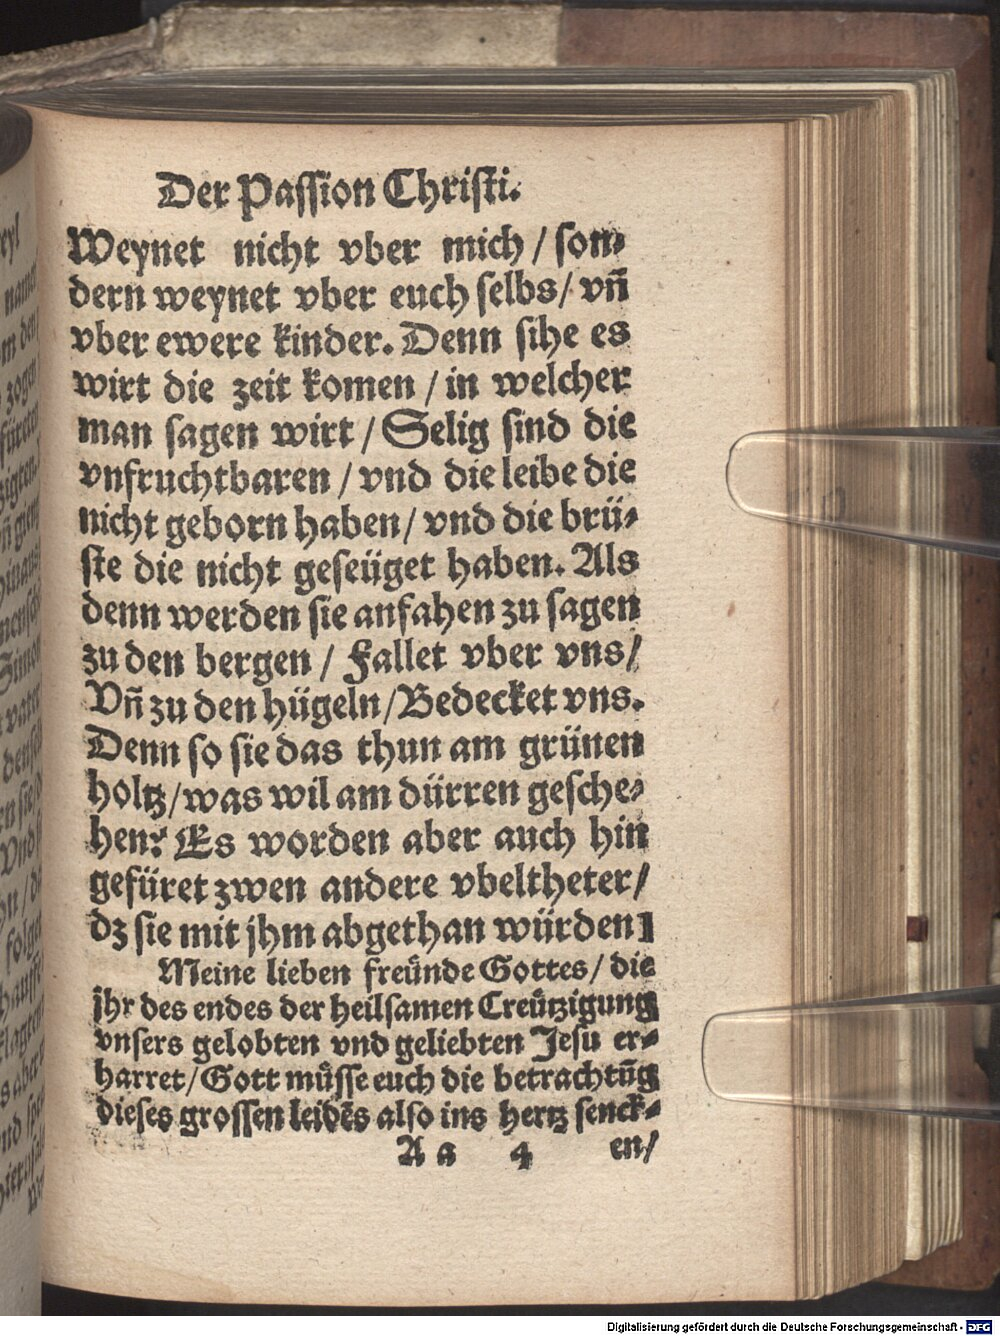 Der Passion Christi.
Weynet nicht vber mich / son⸗
dern weynet vber euch selbs / vñ
vber ewere kinder. Denn sihe es
wirt die zeit komen / in welcher
man sagen wirt / Selig sind die
vnfruchtbaren / vnd die leibe die
nicht geborn haben / vnd die brü⸗
ste die nicht geseüget haben. Als
denn werden sie anfahen zu sagen
zu den bergen / Fallet vber vns /
Vñ zu den hügeln / Bedecket vns.
Denn so sie das thun am grünen
holtz / was wil am dürren gesche⸗
hen? Es worden aber auch hin
gefüret zwen andere vbeltheter /
dz sie mit jhm abgethan würden
Meine lieben freünde Gottes / die
jhr des endes der heilsamen Creützigung
vnsers gelobten vnd geliebten Jesu er⸗
harret / Gott müsse euch die betrachtũg
dieses grossen leidēs also ins hertz senck⸗
A a 4 en /
Digitalisierung gefördert durch die Deutsche Forschungsgemeinschaft - DFG